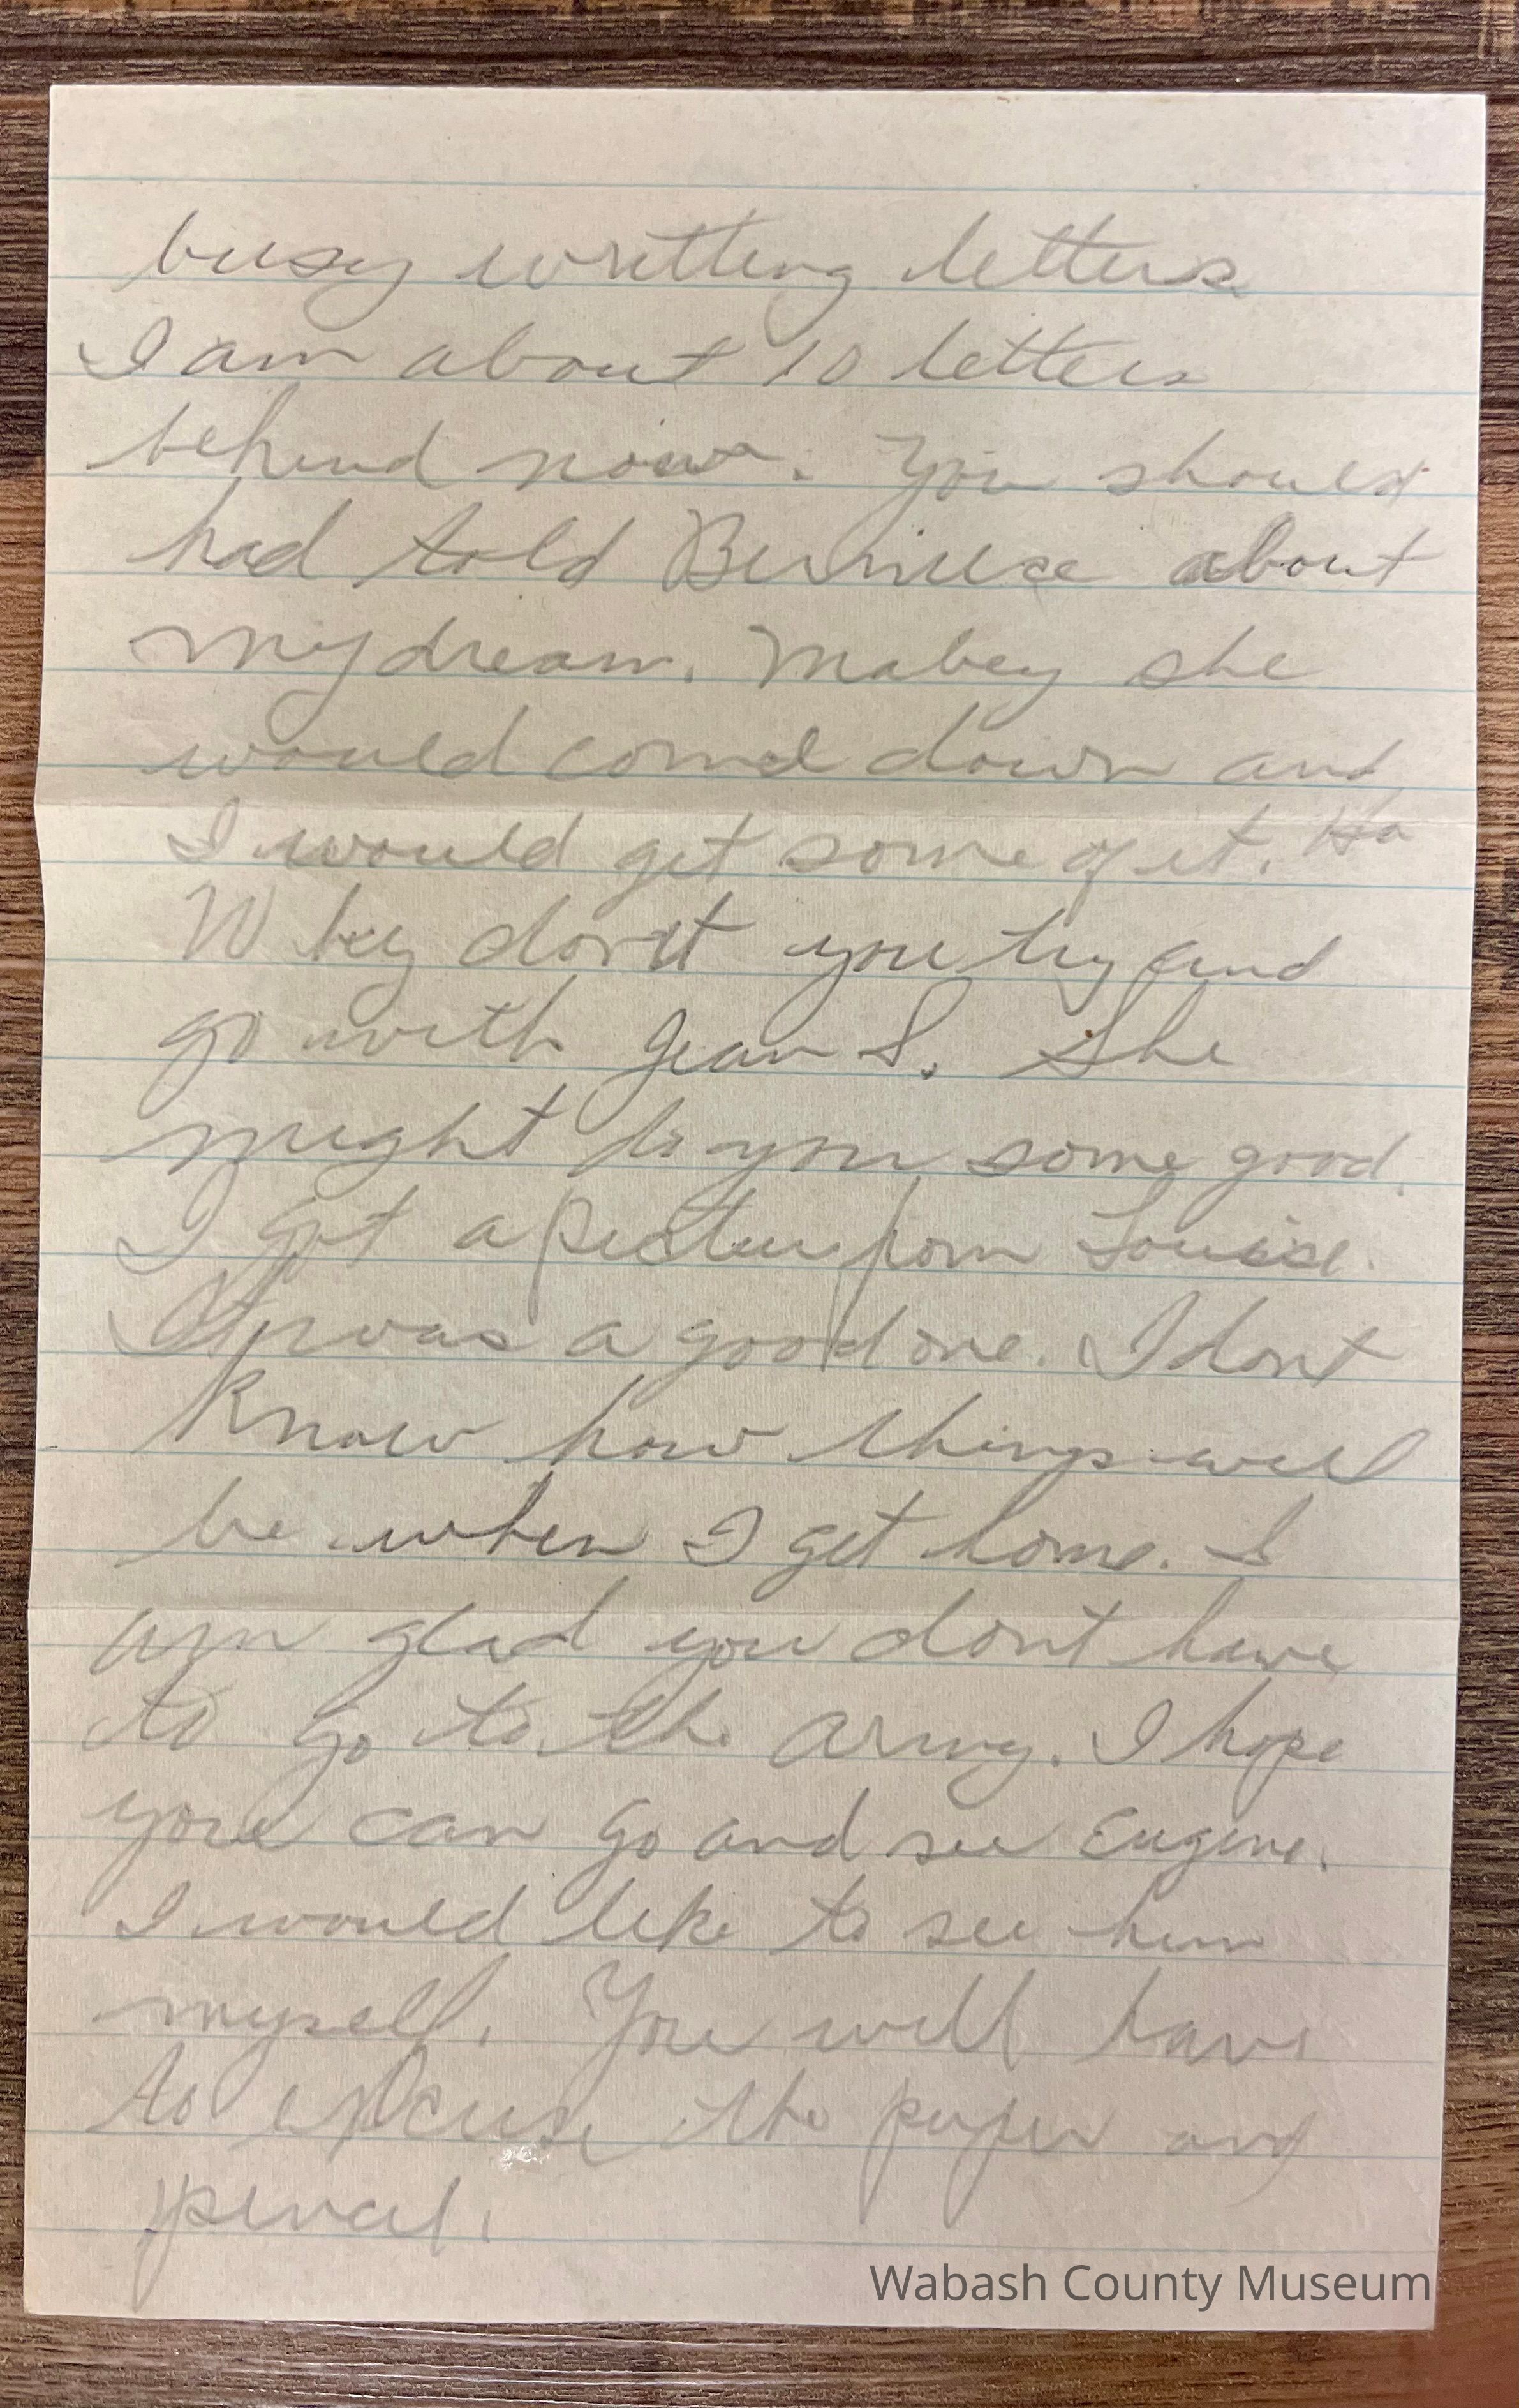 busy writting letters
I am about 10 letters
behind now. You should
had told about
my dream. Mabey she
would come down and
I would get some of it. Ha
Why don't you try and
go with Jean S. She
might do you some good.
I got a from Louise.
It was a good one. I dont
know how things will
be when I get home. I
am glad you dont have
to go to the army. I hope
you can go and see Eugene.
I would like to see him
myself. You will have
to excuse the paper and
pencil.
Wabash County Museum